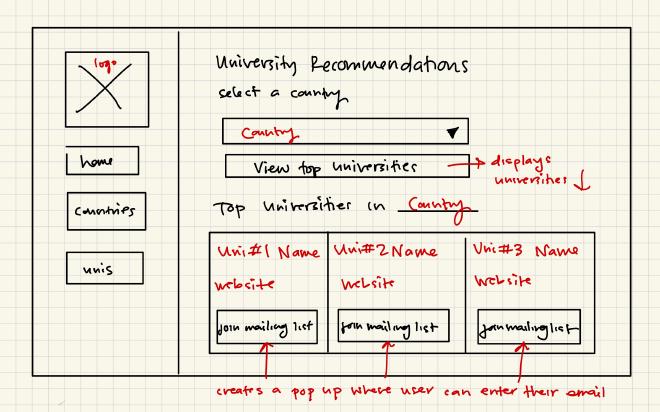 logo
home
countries
unis
University Recommendations
select a country
Country
View top universities
displays
universities
Top Universities in Country
Uni#1 Name
website
join mailing list
Uni#2 Name
Website
join mailing list
Uni#3 Name
Website
join mailing list
creates a pop up where user can enter their email